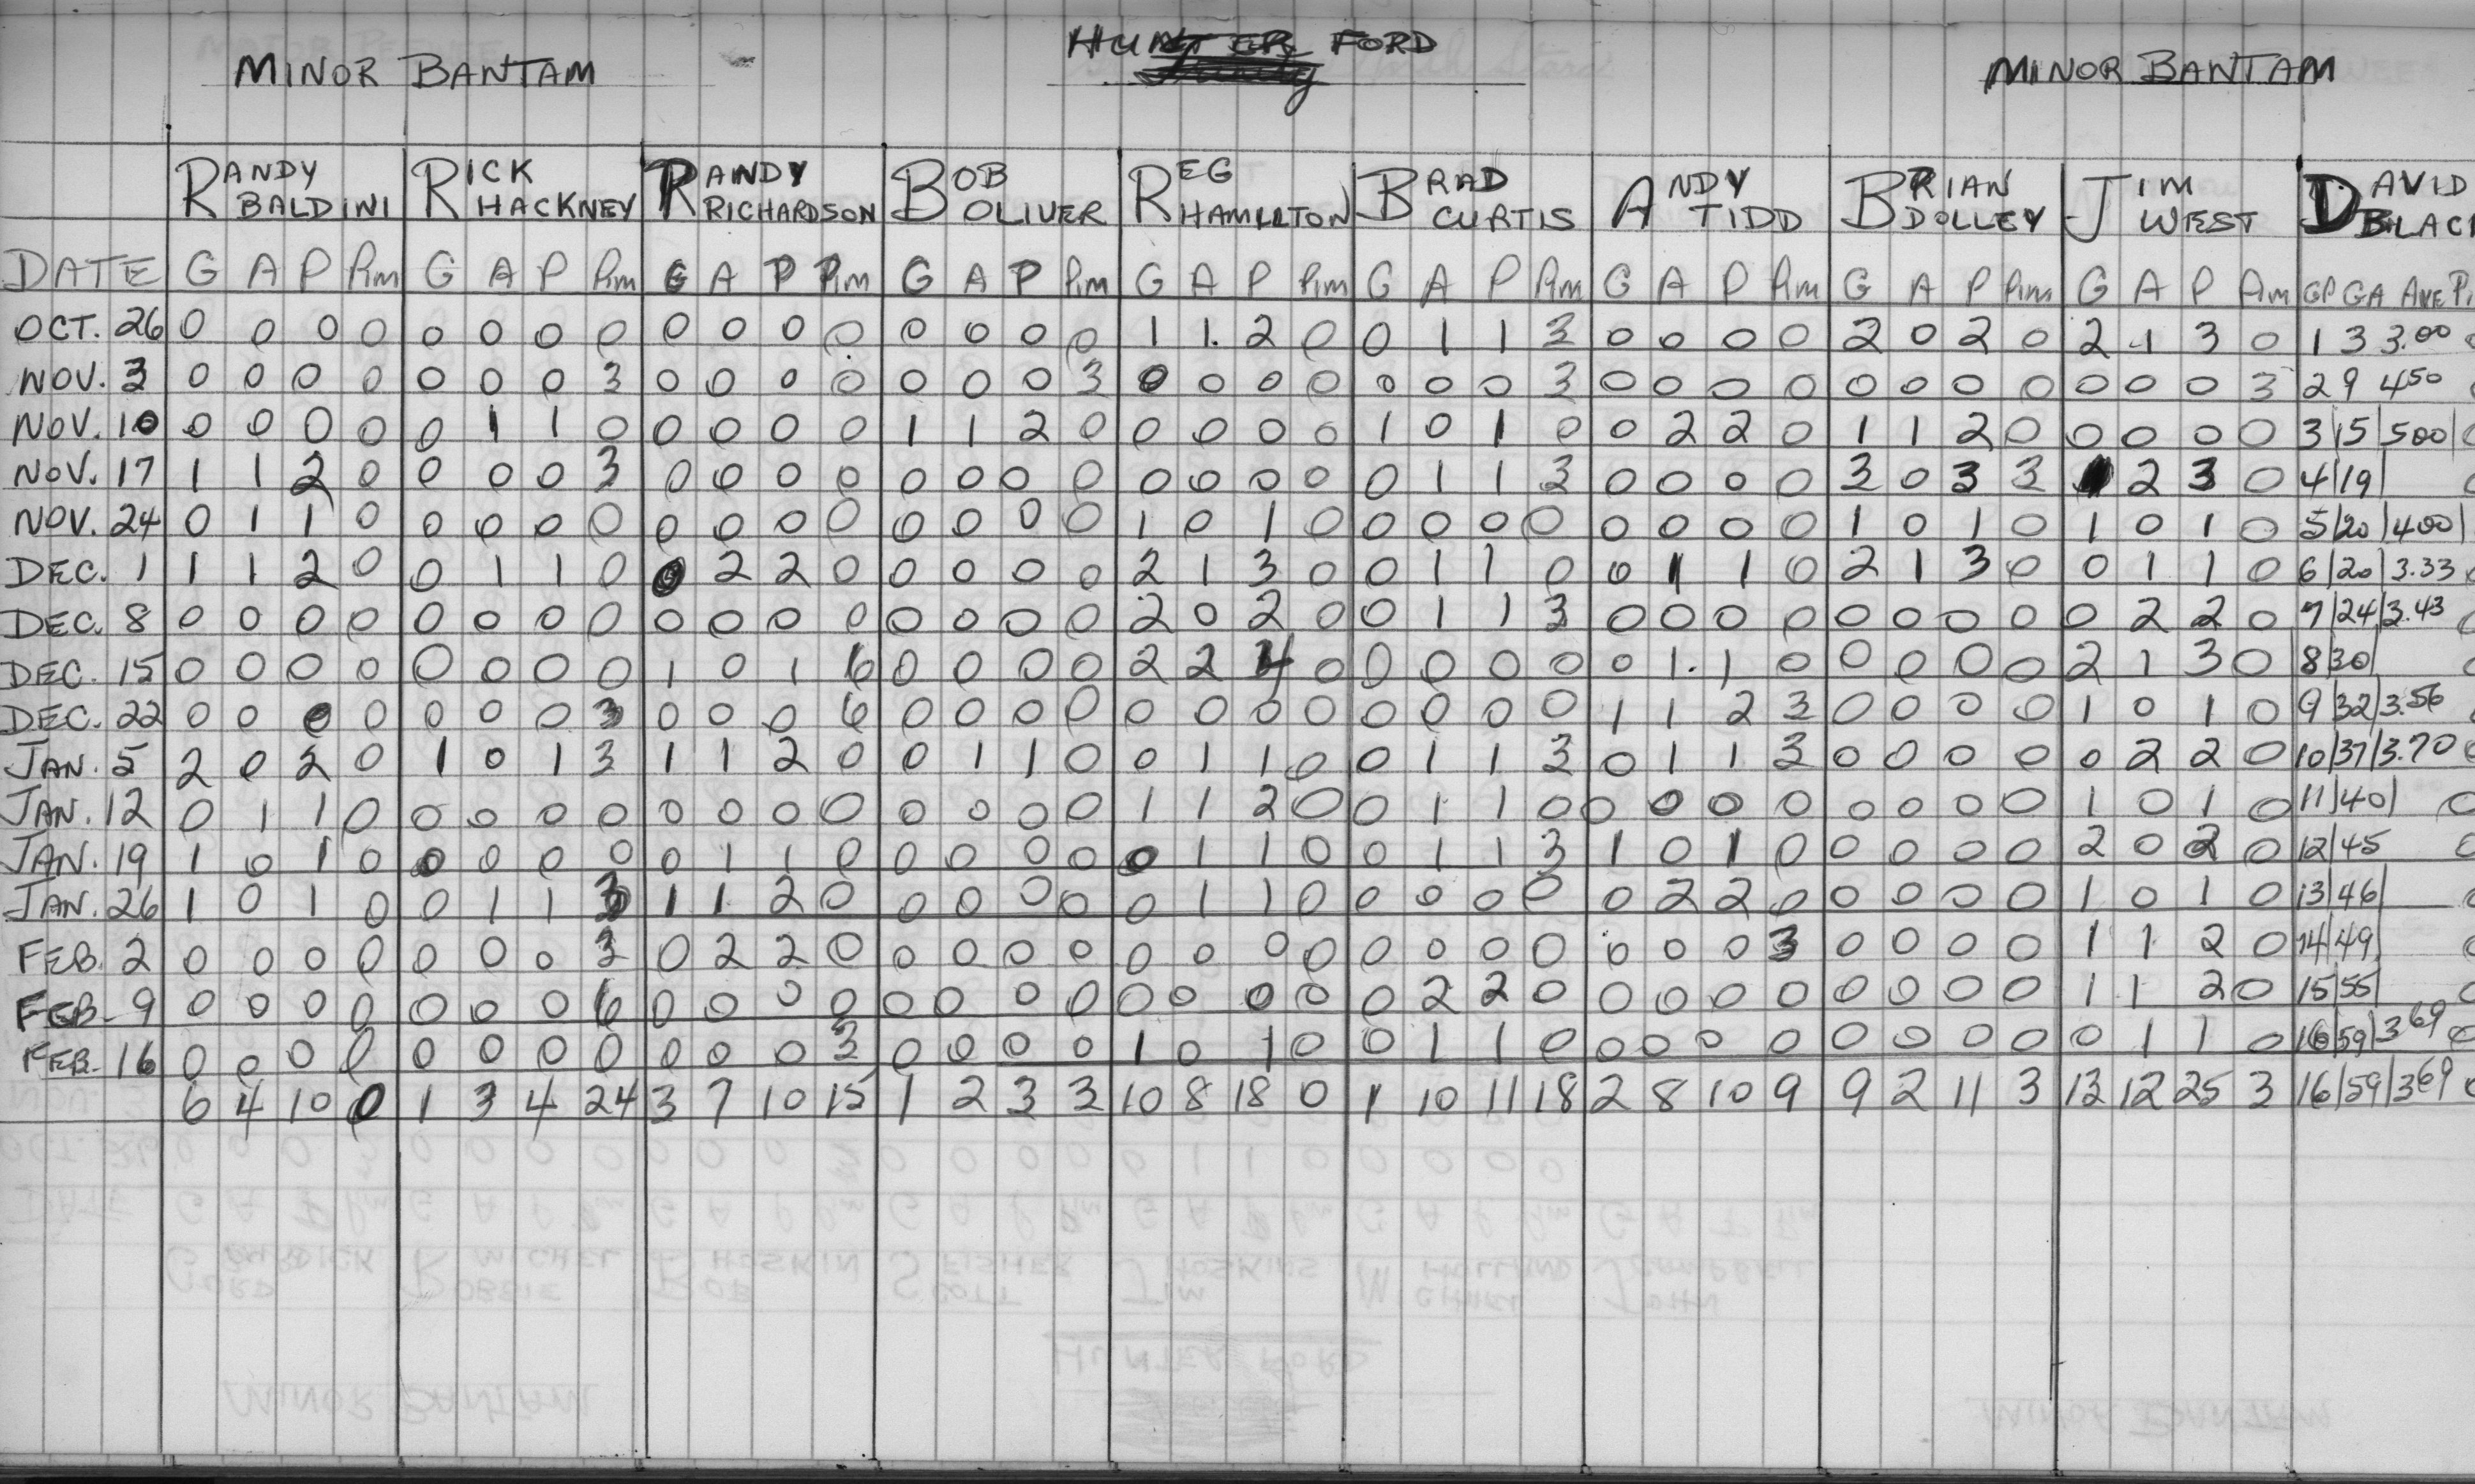 HUNTER FORD
MINOR BANTAM MINOR BANTAM
RANDY RICK RANDY BOB REG BRAD ANDY BRIAN JIM DAVID
BALDINI HACKNEY RICHARDSON OLIVER HAMILTON CURTIS TIDD DOLLEY WEST BLAC
DATE G A P Pim G A P Pim G A P Pim G A P Pim G A P Pim G A P Pim G A P Pim G A P Pim G A P Pim GP GA AVE Pi
OCT. 26 0 0 0 0 0 0 0 0 0 0 0 0 0 0 0 0 1 1. 2 0 0 1 1 3 0 0 0 0 2 0 2 0 2 1 3 0 1 3 3.00
NOV. 3 0 0 0 0 0 0 0 3 0 0 0 0 0 0 0 3 0 0 0 0 0 0 0 3 0 0 0 0 0 0 0 0 0 0 0 3 2 9 4.50
NOV. 10 0 0 0 0 0 1 1 0 0 0 0 0 1 1 2 0 0 0 0 0 1 0 1 0 0 2 2 0 1 1 2 0 0 0 0 0 3|15|500|
NOV. 17 1 1 2 0 0 0 0 3 0 0 0 0 0 0 0 0 0 0 0 0 0 1 1 3 0 0 0 0 3 0 3 3 1 2 3 0 4|19|
NOV. 24 0 1 1 0 0 0 0 0 0 0 0 0 0 0 0 0 1 0 1 0 0 0 0 0 0 0 0 0 1 0 1 0 1 0 1 0 5|20|400|
DEC. 1 1 1 2 0 0 1 1 0 0 2 2 0 0 0 0 0 2 1 3 0 0 1 1 0 0 1 1 0 2 1 3 0 0 1 1 0 6|20|3.33
DEC. 8 0 0 0 0 0 0 0 0 0 0 0 0 0 0 0 0 2 0 2 0 0 1 1 3 0 0 0 0 0 0 0 0 0 2 2 0 7|24|3.43
DEC. 15 0 0 0 0 0 0 0 0 1 0 1 6 0 0 0 0 2 2 4 0 0 0 0 0 0 1. 1 0 0 0 0 0 2 1 3 0 8|30|
DEC. 22 0 0 0 0 0 0 0 3 0 0 0 6 0 0 0 0 0 0 0 0 0 0 0 0 1 1 2 3 0 0 0 0 1 0 1 0 9|32|3.56
JAN. 5 2 0 2 0 1 0 1 3 1 1 2 0 0 1 1 0 0 1 1 0 0 1 1 3 0 1 1 3 0 0 0 0 0 2 2 0 10|37|3.70
JAN. 12 0 1 1 0 0 0 0 0 0 0 0 0 0 0 0 0 1 1 2 0 0 1 1 0 0 0 0 0 0 0 0 0 1 0 1 0 11|40| 0
JAN. 19 1 0 1 0 0 0 0 0 0 1 1 0 0 0 0 0 0 1 1 0 0 1 1 3 1 0 1 0 0 0 0 0 2 0 2 0 12|45 0
JAN. 26 1 0 1 0 0 1 1 3 1 1 2 0 0 0 0 0 0 1 1 0 0 0 0 0 0 2 2 0 0 0 0 0 1 0 1 0 13|46|
FEB. 2 0 0 0 0 0 0 0 3 0 2 2 0 0 0 0 0 0 0 0 0 0 0 0 0 0 0 0 3 0 0 0 0 1 1 2 0 14|49|
FEB. 9 0 0 0 0 0 0 0 6 0 0 0 0 0 0 0 0 0 0 0 0 0 2 2 0 0 0 0 0 0 0 0 0 1 1 2 0 15|55|
FEB. 16 0 0 0 0 0 0 0 0 0 0 0 3 0 0 0 0 1 0 1 0 0 1 1 0 0 0 0 0 0 0 0 0 0 1 1 0 16|59|3 69
6 4 10 0 1 3 4 24 3 7 10 15 1 2 3 3 10 8 18 0 1 10 11 18 2 8 10 9 9 2 11 3 13 12 25 3 16|59|369